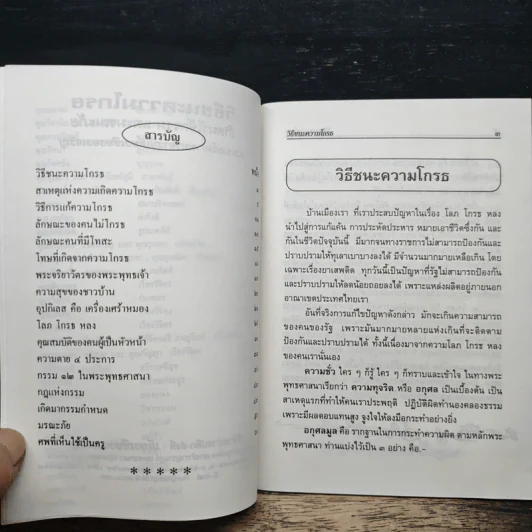 สารบัญ
วิธีชนะความโกรธ
สาเหตุแห่งความเกิดความโกรธ
วิธีการแก้ความโกรธ
ลักษณะของคนไม่โกรธ
ลักษณะคนที่มีโทสะ
โทษที่เกิดจากความโกรธ
พระจริยาวัตรของพระพุทธเจ้า
ความสุขของชาวบ้าน
อุปกิเลส คือ เครื่องเศร้าหมอง
โลภ โกรธ หลง
คุณสมบัติของคนผู้เป็นหัวหน้า
ความตาย ๔ ประการ
กรรม ๑๒ ในพระพุทธศาสนา
กฎแห่งกรรม
เกิดมากรรมกำหนด
มรณะภัย
ศพที่เห็นใช้เป็นครู
* * * * *
วิธีชนะความโกรธ ๓
วิธีชนะความโกรธ
บ้านเมืองเรา ที่เราประสบปัญหาในเรื่อง โลภ โกรธ หลง
นำไปสู่การแก้แค้น การประหัตประหาร หมายเอาชีวิตซึ่งกัน และ
กันในชีวิตปัจจุบันนี้ มีมากจนทางราชการไม่สามารถป้องกันและ
ปราบปรามให้ทุเลาเบาบางลงได้ มีจำนวนมากมายเหลือเกิน โดย
เฉพาะเรื่องยาเสพติด ทุกวันนี้เป็นปัญหาที่รัฐไม่สามารถป้องกัน
และปราบปรามให้ลดน้อยถอยลงได้ เพราะแหล่งผลิตอยู่ภายนอก
อาณาเขตประเทศไทยเรา
อันที่จริงการแก้ไขปัญหาดังกล่าว มักจะเกินความสามารถ
ของคนของรัฐ เพราะมันมากมายหลายแห่งเกินที่จะติดตาม
ป้องกันและปราบปรามได้ ทั้งนี้เนื่องมาจากความโลภ โกรธ หลง
ของคนเรานั่นเอง
ความชั่ว ใคร ๆ ก็รู้ ใคร ๆ ก็ทราบและเข้าใจ ในทางพระ
พุทธศาสนาเรียกว่า ความทุจริต หรือ อกุศล เป็นเบื้องต้น เป็น
สาเหตุแรกที่ทำให้คนเราประพฤติ ปฏิบัติผิดทำนองคลองธรรม
เพราะมีผลตอบแทนสูง จูงใจให้ลงมือกระทำอย่างยิ่ง
อกุศลมูล คือ รากฐานในการกระทำความผิด ตามหลักพระ
พุทธศาสนา ท่านแบ่งไว้เป็น ๓ อย่าง คือ.-